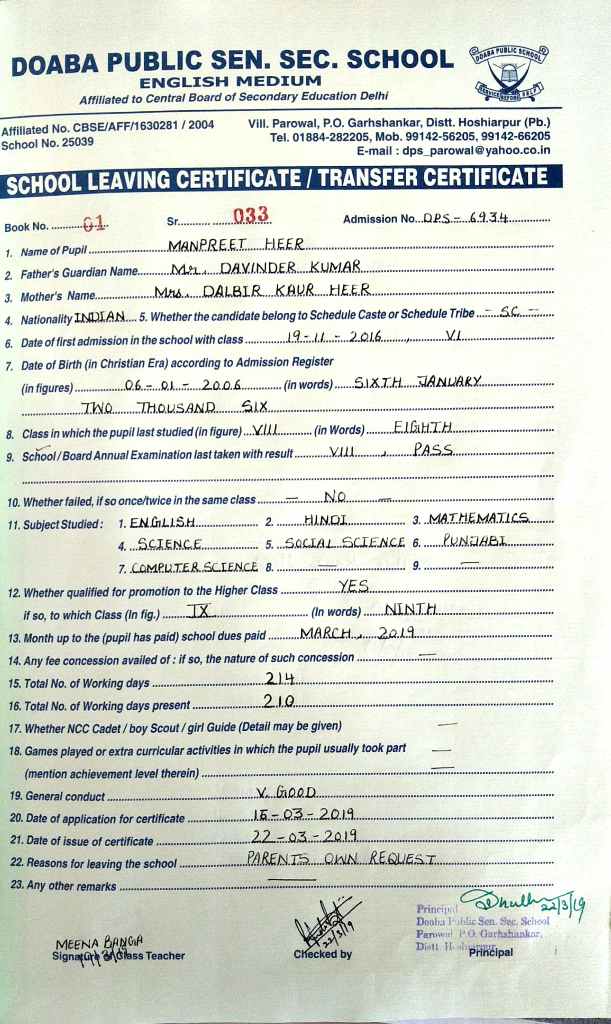 DOABA PUBLIC SEN. SEC. SCHOOL
ENGLISH MEDIUM
Affiliated to Central Board of Secondary Education Delhi
DOABA PUBLIC SCHOOL
Affiliated No. CBSE/AFF/1630281 / 2004
School No. 25039
Vill. Parowal, P.O. Garhshankar, Distt. Hoshiarpur (Pb.)
Tel. 01884-282205, Mob. 99142-56205, 99142-66205
E-mail : dps_parowal@yahoo.co.in
SCHOOL LEAVING CERTIFICATE / TRANSFER CERTIFICATE
Book No. 01 Sr. 033 Admission No. DPS - 6934
1. Name of Pupil MANPREET HEER
2. Father's Guardian Name Mr. DAVINDER KUMAR
3. Mother's Name Mrs. DALBIR KAUR HEER
4. Nationality INDIAN 5. Whether the candidate belong to Schedule Caste or Schedule Tribe - SC -
6. Date of first admission in the school with class 19-11-2016, VI
7. Date of Birth (in Christian Era) according to Admission Register
(in figures) 06-01-2006 (in words) SIXTH JANUARY
TWO THOUSAND SIX
8. Class in which the pupil last studied (in figure) VIII (in Words) EIGHTH
9. School / Board Annual Examination last taken with result VIII, PASS
10. Whether failed, if so once/twice in the same class — NO —
11. Subject Studied : 1. ENGLISH 2. HINDI 3. MATHEMATICS
4. SCIENCE 5. SOCIAL SCIENCE 6. PUNJABI
7. COMPUTER SCIENCE 8. — 9. —
12. Whether qualified for promotion to the Higher Class YES
if so, to which Class (In fig.) IX (In words) NINTH
13. Month up to the (pupil has paid) school dues paid MARCH, 2019
14. Any fee concession availed of : if so, the nature of such concession —
15. Total No. of Working days 214
16. Total No. of Working days present 210
17. Whether NCC Cadet / boy Scout / girl Guide (Detail may be given) —
18. Games played or extra curricular activities in which the pupil usually took part —
(mention achievement level therein) —
19. General conduct V. GOOD
20. Date of application for certificate 15-03-2019
21. Date of issue of certificate 22-03-2019
22. Reasons for leaving the school PARENTS OWN REQUEST
23. Any other remarks —
22/3/19
Principal
Doaba Public Sen. Sec. School
Parowal P.O. Garhshankar,
Distt. Hoshiarpur
22/3/19
MEENA BANGA
Signature of Class Teacher Checked by Principal